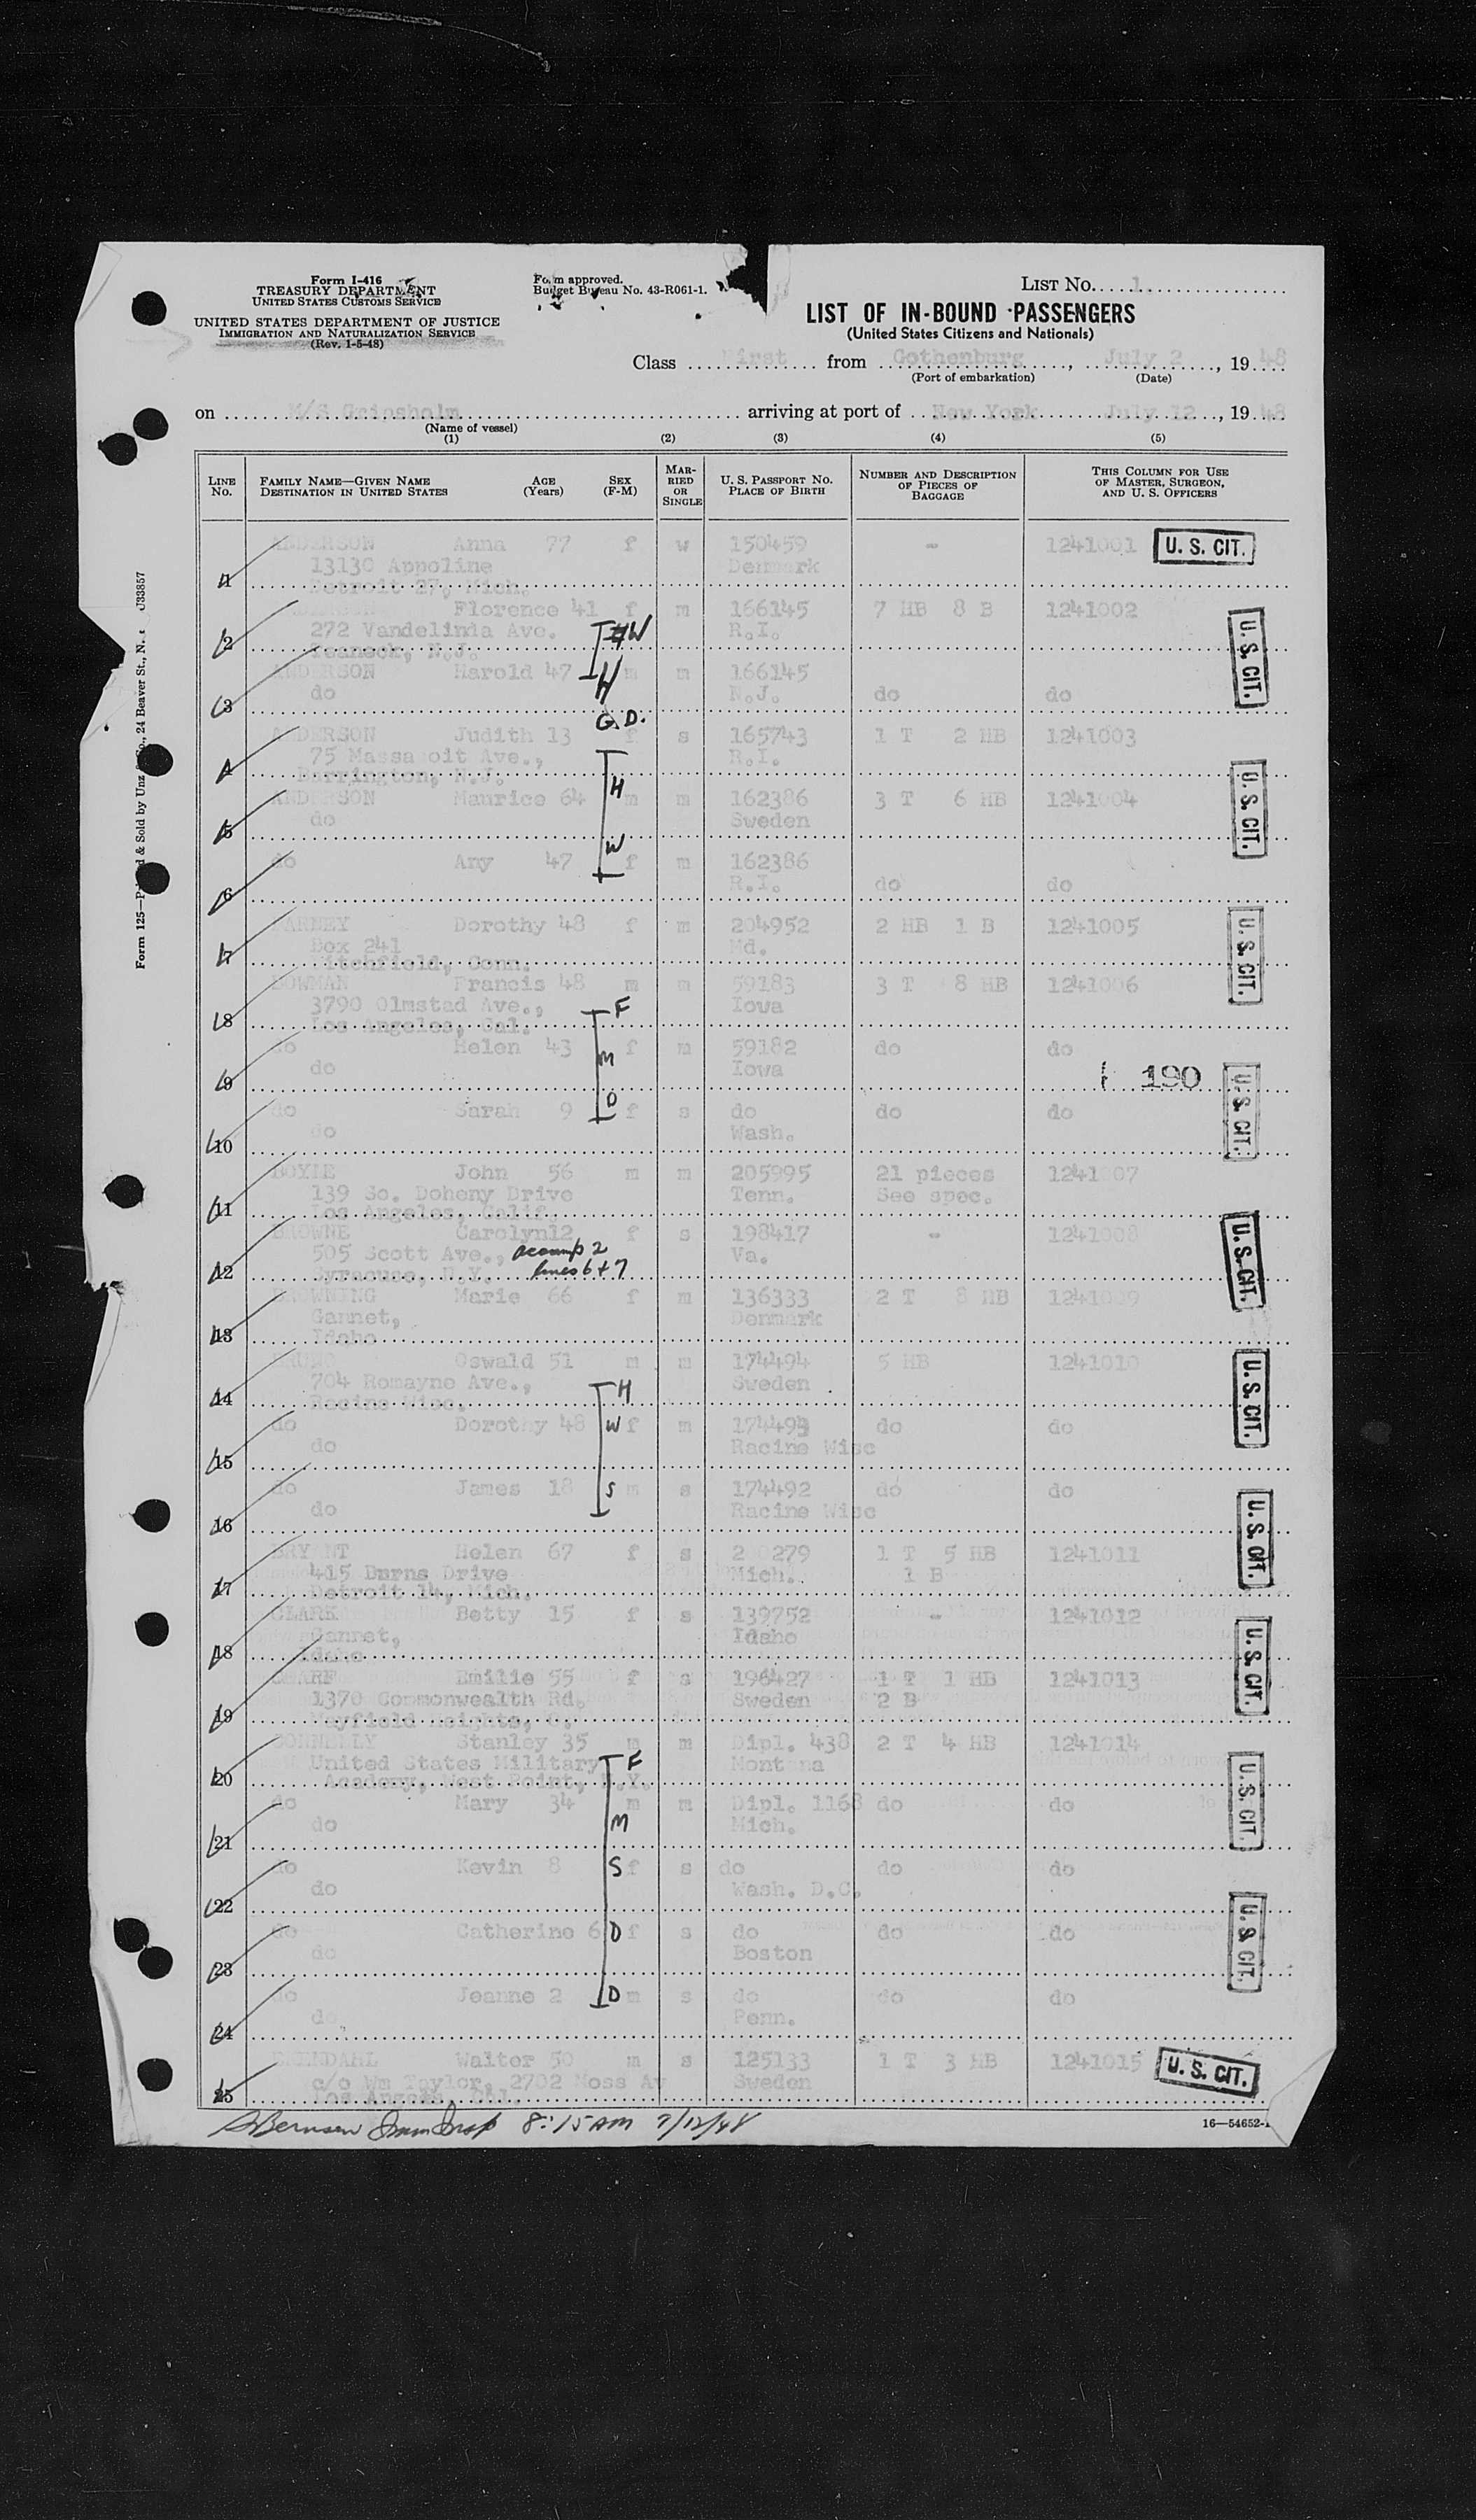 Form I-416
TREASURY DEPARTMENT
UNITED STATES CUSTOMS SERVICE
UNITED STATES DEPARTMENT OF JUSTICE
IMMIGRATION AND NATURALIZATION SERVICE
(Rev. 1-5-48)
Form approved.
Budget Bureau No. 43-R061-1.
LIST No. 1
LIST OF IN-BOUND PASSENGERS
(United States Citizens and Nationals)
Class First from Gothenburg, July 2, 1948
(Port of embarkation) (Date)
on M/S Gripsholm arriving at port of New York July 12, 1948
(Name of vessel)
(1) (2) (3) (4) (5)
LINE No. FAMILY NAME—GIVEN NAME DESTINATION IN UNITED STATES AGE (Years) SEX (F-M) MARRIED OR SINGLE U. S. PASSPORT No. PLACE OF BIRTH NUMBER AND DESCRIPTION OF PIECES OF BAGGAGE THIS COLUMN FOR USE OF MASTER, SURGEON, AND U. S. OFFICERS
ANDERSON Anna 77 f w 150459 - 1241001 U. S. CIT.
13130 Appoline Denmark
1 Detroit 27, Mich.
Florence 41 f m 166145 7 HB 8 B 1241002
272 Vandelinda Ave. W R.I. U. S. CIT.
2 Teaneck, N.J.
ANDERSON Harold 47 H m m 166145
do N.J. do do
3 G.D.
ANDERSON Judith 13 f s 165743 1 T 2 HB 1241003
75 Massasoit Ave., R.I.
4 Barrington, N.J. H U. S. CIT.
ANDERSON Maurice 64 m m 162386 3 T 6 HB 1241004
do Sweden
5 W
do Any 47 f m 162386
R.I. do do
6
BARNEY Dorothy 48 f m 204952 2 HB 1 B 1241005
Box 241 Md. U. S. CIT.
7 Litchfield, Conn.
BOWMAN Francis 48 m m 59183 3 T 8 HB 1241006
3790 Olmstad Ave., F Iowa
8 Los Angeles, Cal.
do Helen 43 f m 59182 do do
do M Iowa 190
9 U. S. CIT.
do Sarah 9 D f s do do do
do Wash.
10
BOYLE John 56 m m 205995 21 pieces 1241007
139 So. Doheny Drive Tenn. See spec.
11 Los Angeles, Calif.
BROWNE Carolyn 12 f s 198417 - 1241008
505 Scott Ave., accomp 2 Va. U. S. CIT.
12 Syracuse, N.Y. lines 6 + 7
BROWNING Marie 66 f m 136333 2 T 8 HB 1241009
Gannet, Denmark
13 Idaho
Oswald 51 m m 174494 5 HB 1241010
704 Romayne Ave., H Sweden U. S. CIT.
14 Racine Wisc.
do Dorothy 48 W f m 174493 do do
do Racine Wisc
15
do James 18 S m s 174492 do do
do Racine Wisc U. S. CIT.
16
BRYANT Helen 67 f s 2 0279 1 T 5 HB 1241011
415 Burns Drive Mich. 1 B
17 Detroit 14, Mich.
CLARK Betty 15 f s 139752 - 1241012
Gannet, Idaho U. S. CIT.
18 Idaho
Emilie 55 f s 196427 1 T 1 HB 1241013
1370 Commonwealth Rd. Sweden 2 B
19 Mayfield Heights, O.
DONNELLY Stanley 35 m m Dipl. 438 2 T 4 HB 1241014
United States Military F Montana
20 Academy, West Point, N.Y. U. S. CIT.
do Mary 34 m m Dipl. 1168 do do
do M Mich.
21
do Kevin 8 S f s do do do
do Wash. D.C.
22
do Catherine 6 D f s do do do
do Boston U. S. CIT.
23
do Jeanne 2 D m s do do do
do Penn.
24
Walter 50 m s 125133 1 T 3 HB 1241015 U. S. CIT.
c/o Wm Taylor, 2702 Moss Av Sweden
25 Los Angels, Cal.
Bernsen Imm Insp 8:15 AM 7/12/48
16—54652-1
Form 125—Printed & Sold by Unz & Co., 24 Beaver St., N. J33857